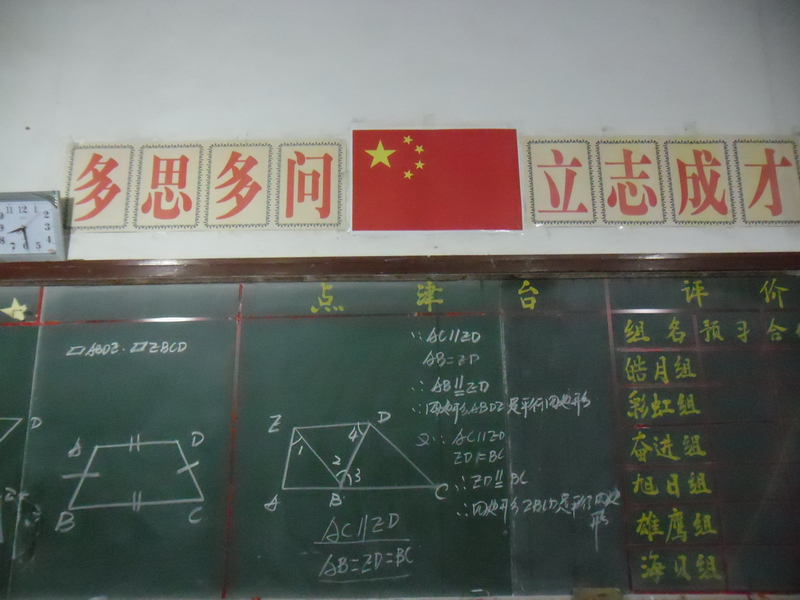 多思多问
立志成才
11 12 1
点津台
▱ABDZ. ▱ZBCD
A D
B C
Z D
1 4 2 3
A B C
AC∥ZD
AB=ZD=BC
∵AC∥ZD
AB=ZD
∴AB∥=ZD
∴四边形ABDZ是平行四边形
又∵AC∥ZD
ZD=BC
∴ZD∥=BC
∴四边形ZBCD是平行四边形
评价
组名 预习 合
皓月组
彩虹组
奋进组
旭日组
雄鹰组
海贝组